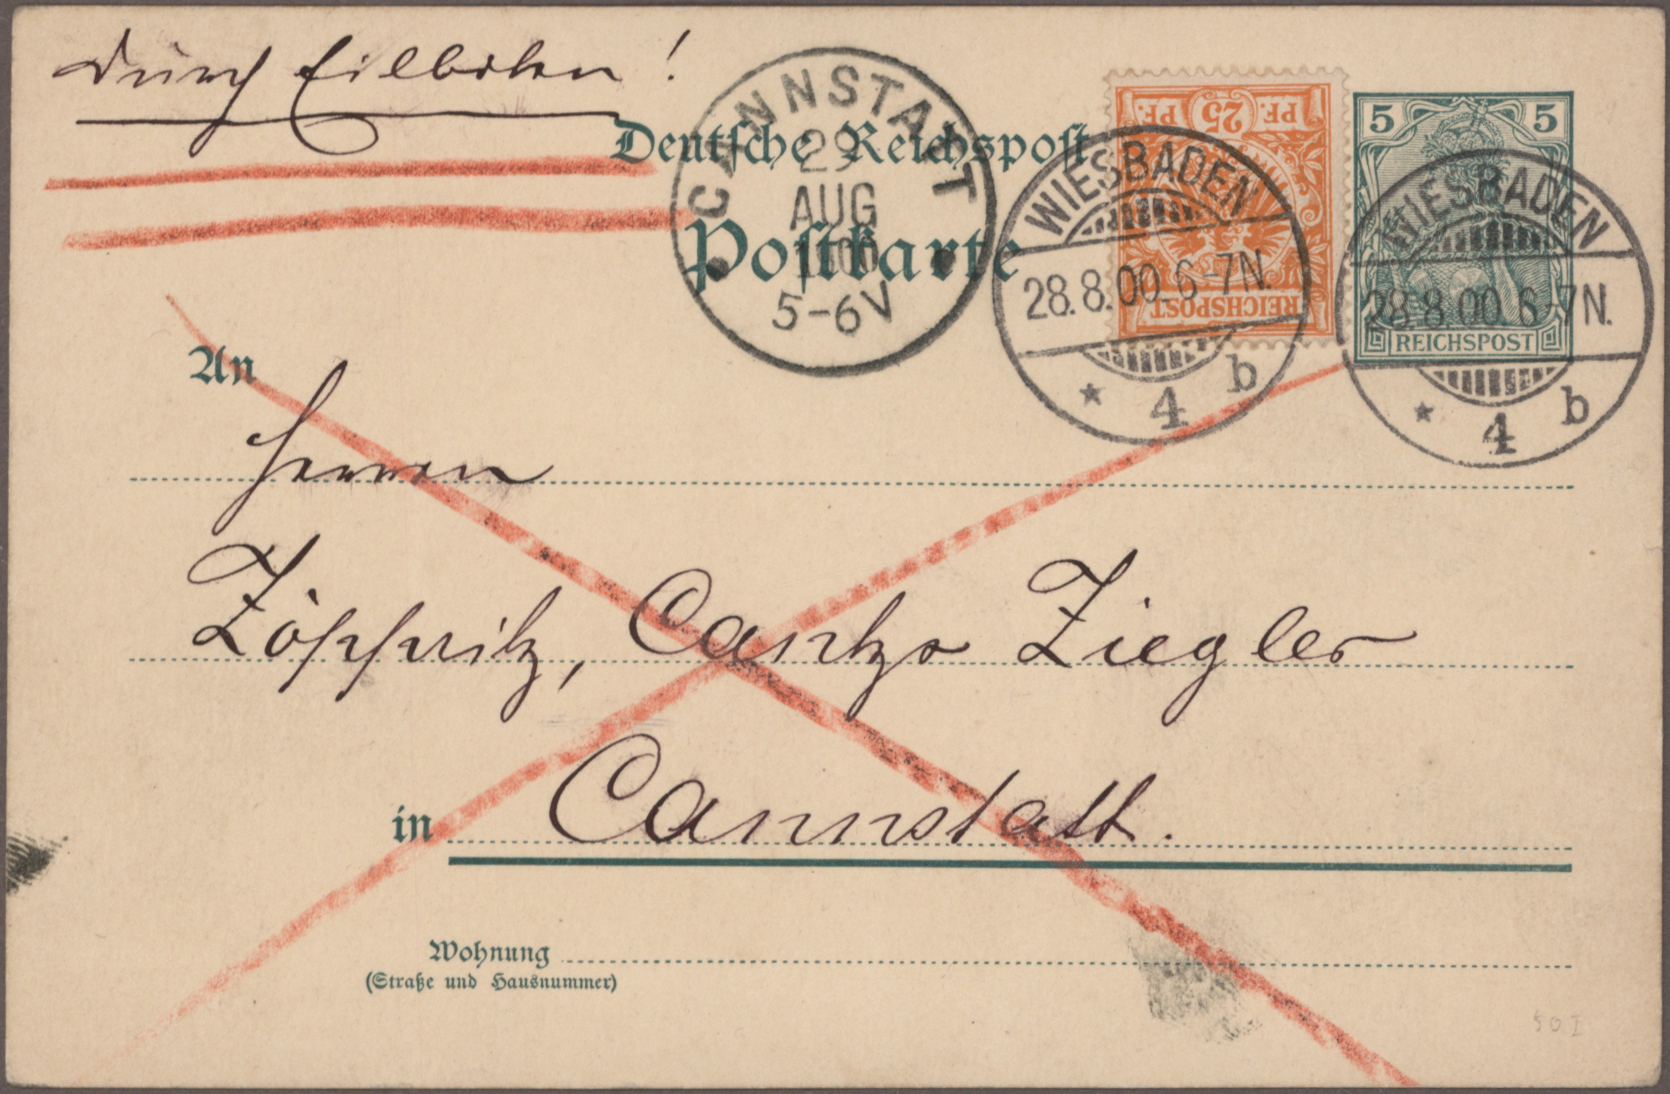 Durch Eilboten!
Deutsche Reichspost
Postkarte
CANNSTATT
29
AUG
1900
5-6V
25
PF. PF.
REICHSPOST
WIESBADEN
28.8.00.6-7N.
* 4 b
5 5
REICHSPOST
WIESBADEN
28.8.00.6-7N.
* 4 b
An
Herren
Zöppritz, Cantzo Ziegler
in Cannstatt.
Wohnung
(Straße und Hausnummer)
50 I